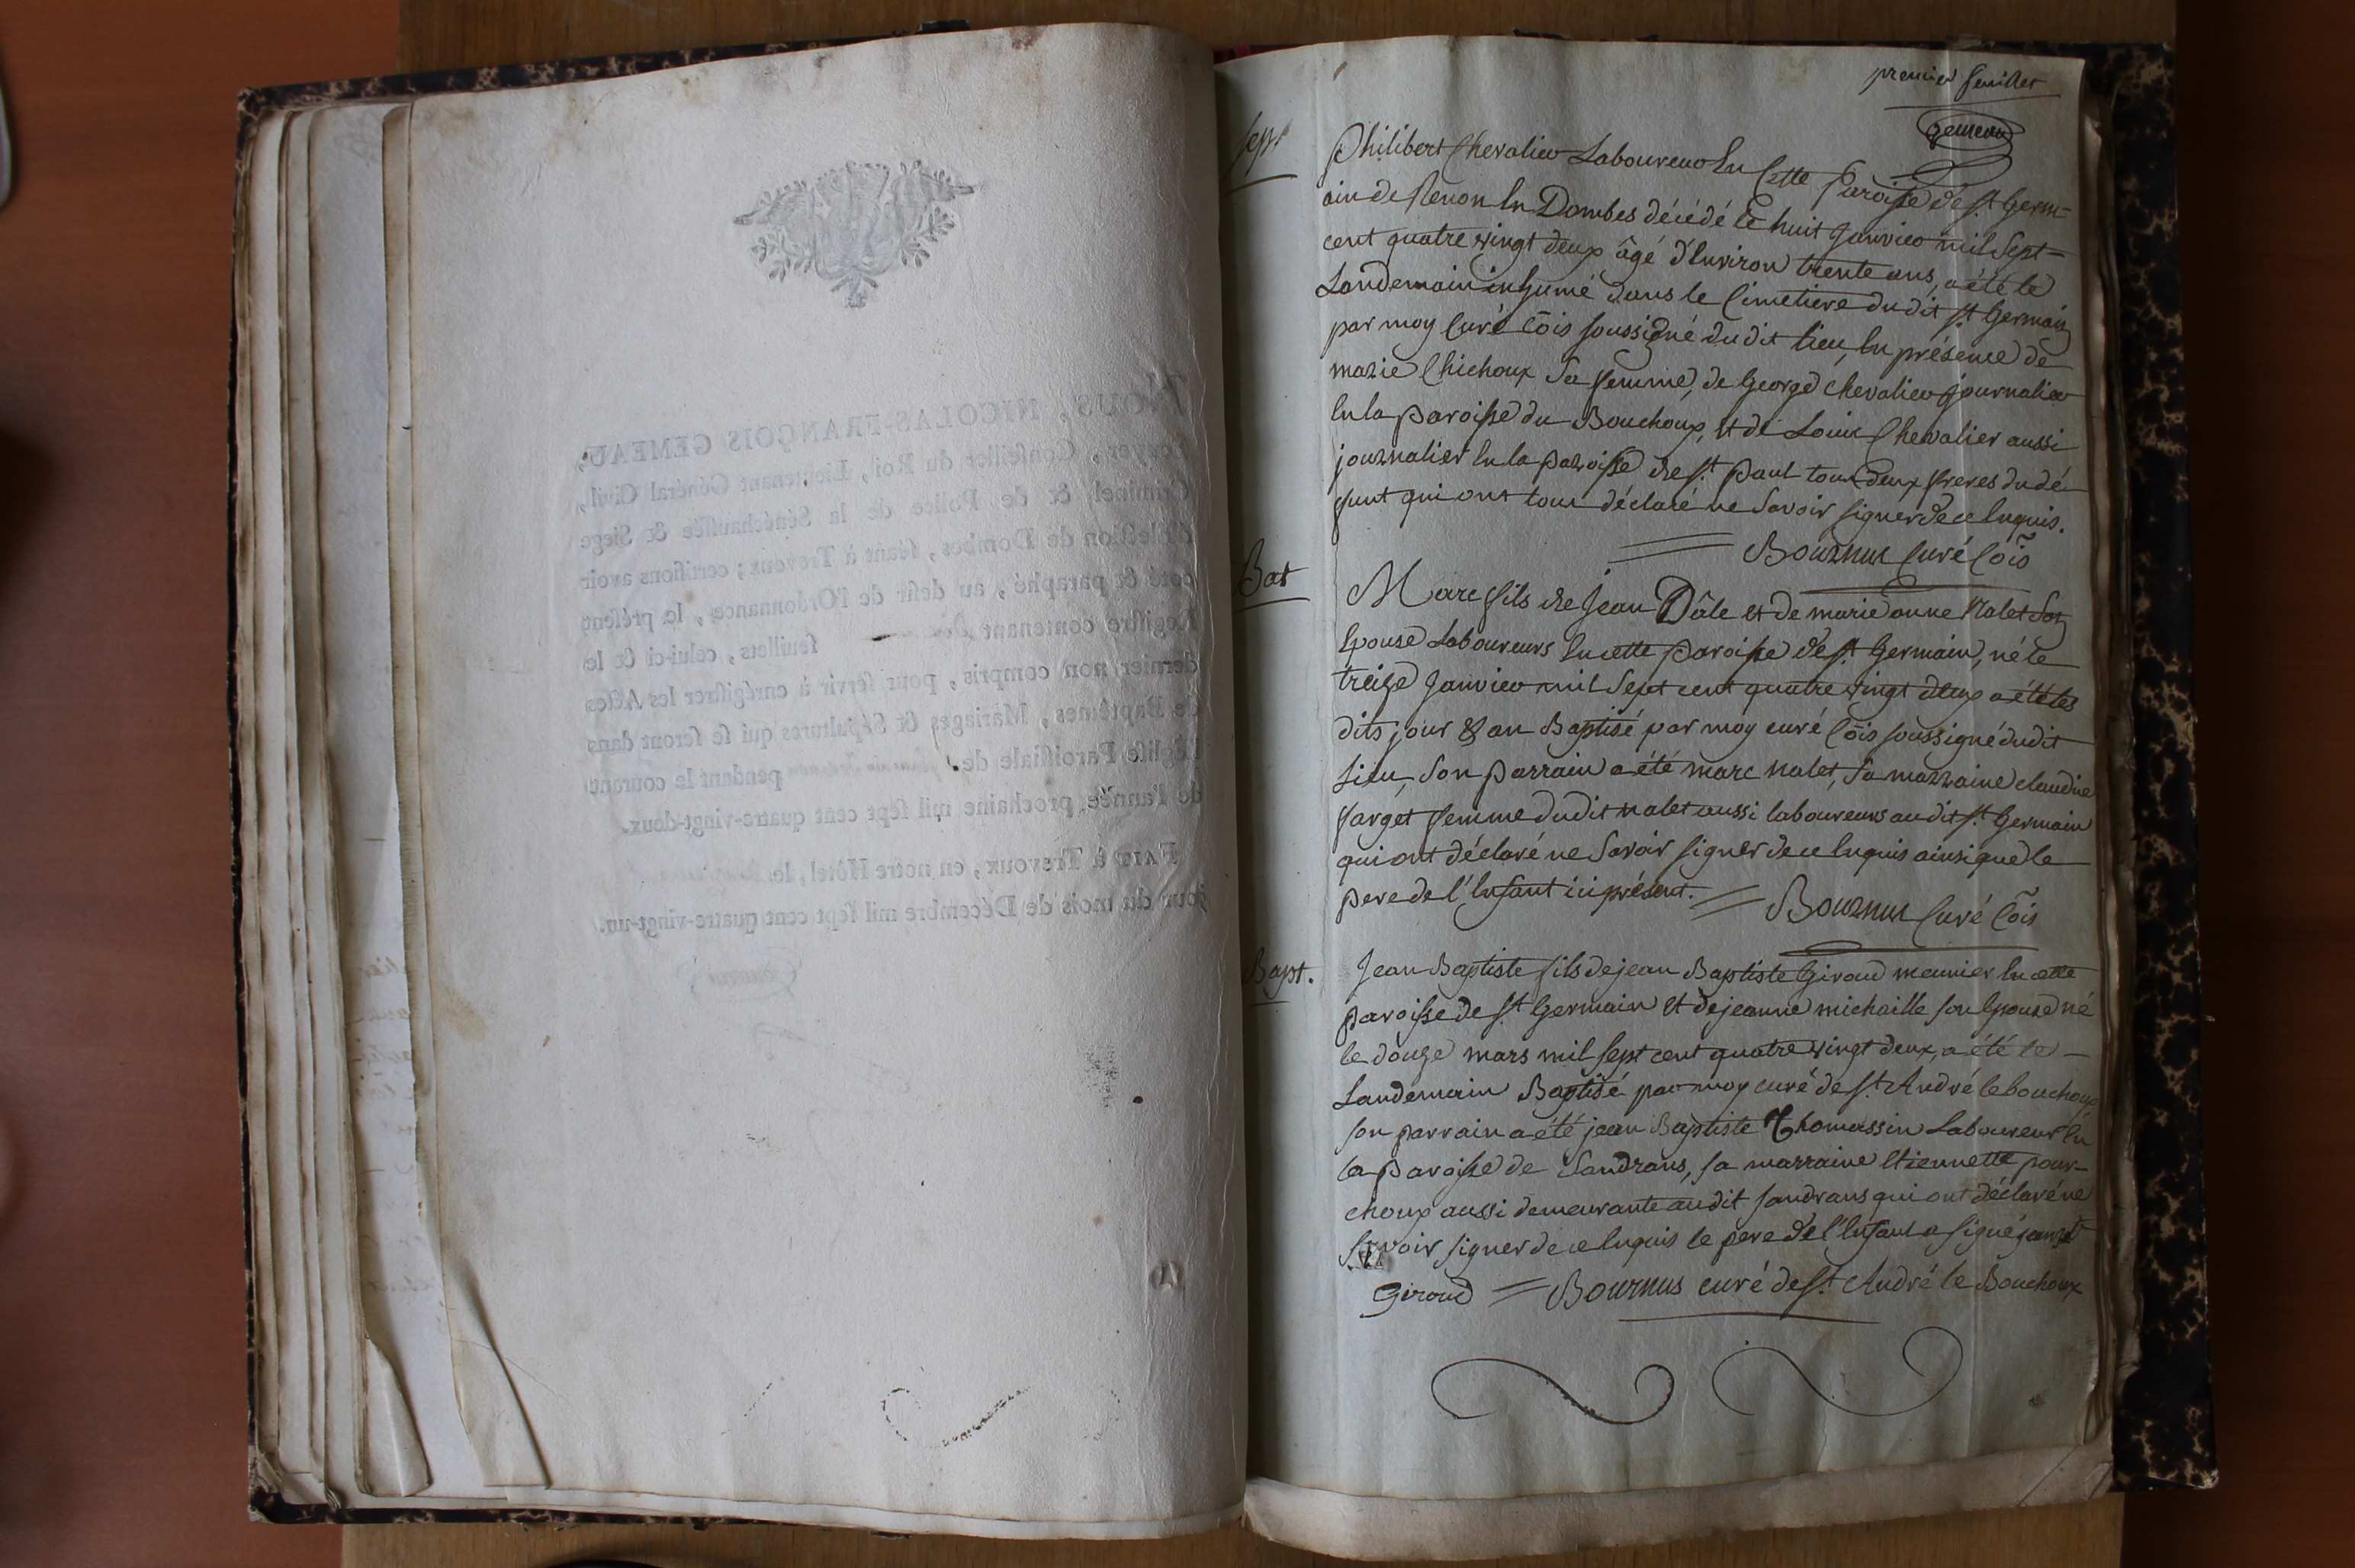 premier feuillet
Gemeau
Sept
Philibert Chevalier Laboureur En Cette Paroisse de St. Germ-
ain de Renon En Dombes décédé le huit janvier mil Sept-
cent quatre vingt deux âgé d'Environ trente ans, a été le
Landemain inhumé dans le Cimetiere dudit St. Germain
par moy Curé Cõis soussigné dudit lieu, En présence de
marie Chichoux Sa femme, de George chevalier journalier
En la paroisse du Bouchoux, Et de Louis Chevalier aussi
journalier En la paroisse de St. paul tous deux freres du dé-
funt qui ont tous déclaré ne Savoir signer de ce Enquis.
Bournus Curé Cõis
Bat
Marc fils de Jean Dâle et de marie anne Nalet Son
Epouse Laboureurs En cette paroisse de St. Germain, né le
treize janvier mil Sept cent quatre vingt deux a été les
dits jour & an Baptisé par moy curé Cõis soussigné dudit
Lieu, Son parrain a été marc nalet, Sa marraine claudine
farget femme dudit nalet aussi laboureurs audit St. Germain
qui ont déclaré ne Savoir signer de ce Enquis ainsi que le
pere de l'Enfant ici présent. = Bournus Curé Cõis
Bapt.
Jean Baptiste fils de jean Baptiste Giroud meunier En cette
paroisse de St. Germain Et de jeanne michaille son Epouse né
le douze mars mil sept cent quatre vingt deux, a été le -
Landemain Baptisé par moy curé de St. André le bouchoux
son parrain a été jean Baptiste Thomassin Laboureur En
la paroisse de Sandrans, sa marraine Etiennette pour-
choux aussi demeurante audit sandrans qui ont déclaré ne
Savoir signer de ce Enquis le pere de l'Enfant a signé
Giroud = Bournus curé de St. André le Bouchoux
NOUS, NICOLAS-FRANÇOIS GEMEAU,
Ecuyer, Conseiller du Roi, Lieutenant Général Civil,
Criminel & de Police de la Sénéchaussée & Siege
d'Election de Dombes, séant à Trevoux; certifions avoir
coté & paraphé, au desir de l'Ordonnance, le présent
Registre contenant feuillets, celui-ci & le
dernier non compris, pour servir à enrégistrer les Actes
de Baptêmes, Mariages & Sépultures qui se feront dans
l'Eglise Paroissiale de pendant le courant
de l'année prochaine mil sept cent quatre-vingt-deux.
FAIT à Trevoux, en notre Hôtel, le
jour du mois de Décembre mil sept cent quatre-vingt-un.